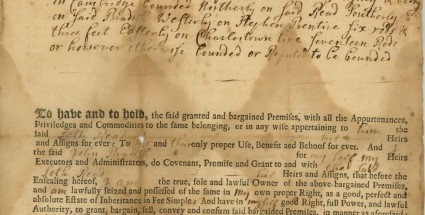 in Cambridge bounded Northerly on said Road Southerly
on said Westerly on Stephen Prentice six rods &
three feet Easterly on Charlestown line Seventeen Rods
or however otherwise bounded or Reputed to be bounded
To have and to hold, the said granted and bargained Premises, with all the Appurtenances,
Priviledges and Commodities to the same belonging, or in any wise appertaining to him the
said Heirs
and Assigns for ever: To and their only proper Use, Benefit and Behoof for ever. And I
the said John for my self my Heirs
Executors and Administrators, do Covenant, Promise and Grant to and with
his Heirs and Assigns, that before the
Ensealing hereof, I am the true, sole and lawful Owner of the above-bargained Premises,
and am lawfully seized and possessed of the same in my own proper Right, as a good, perfect and
absolute Estate of Inheritance in Fee Simple: And have in my self good Right, full Power, and lawful
Authority, to grant, bargain, sell, convey and confirm said bargained Premises, in manner as aforesaid